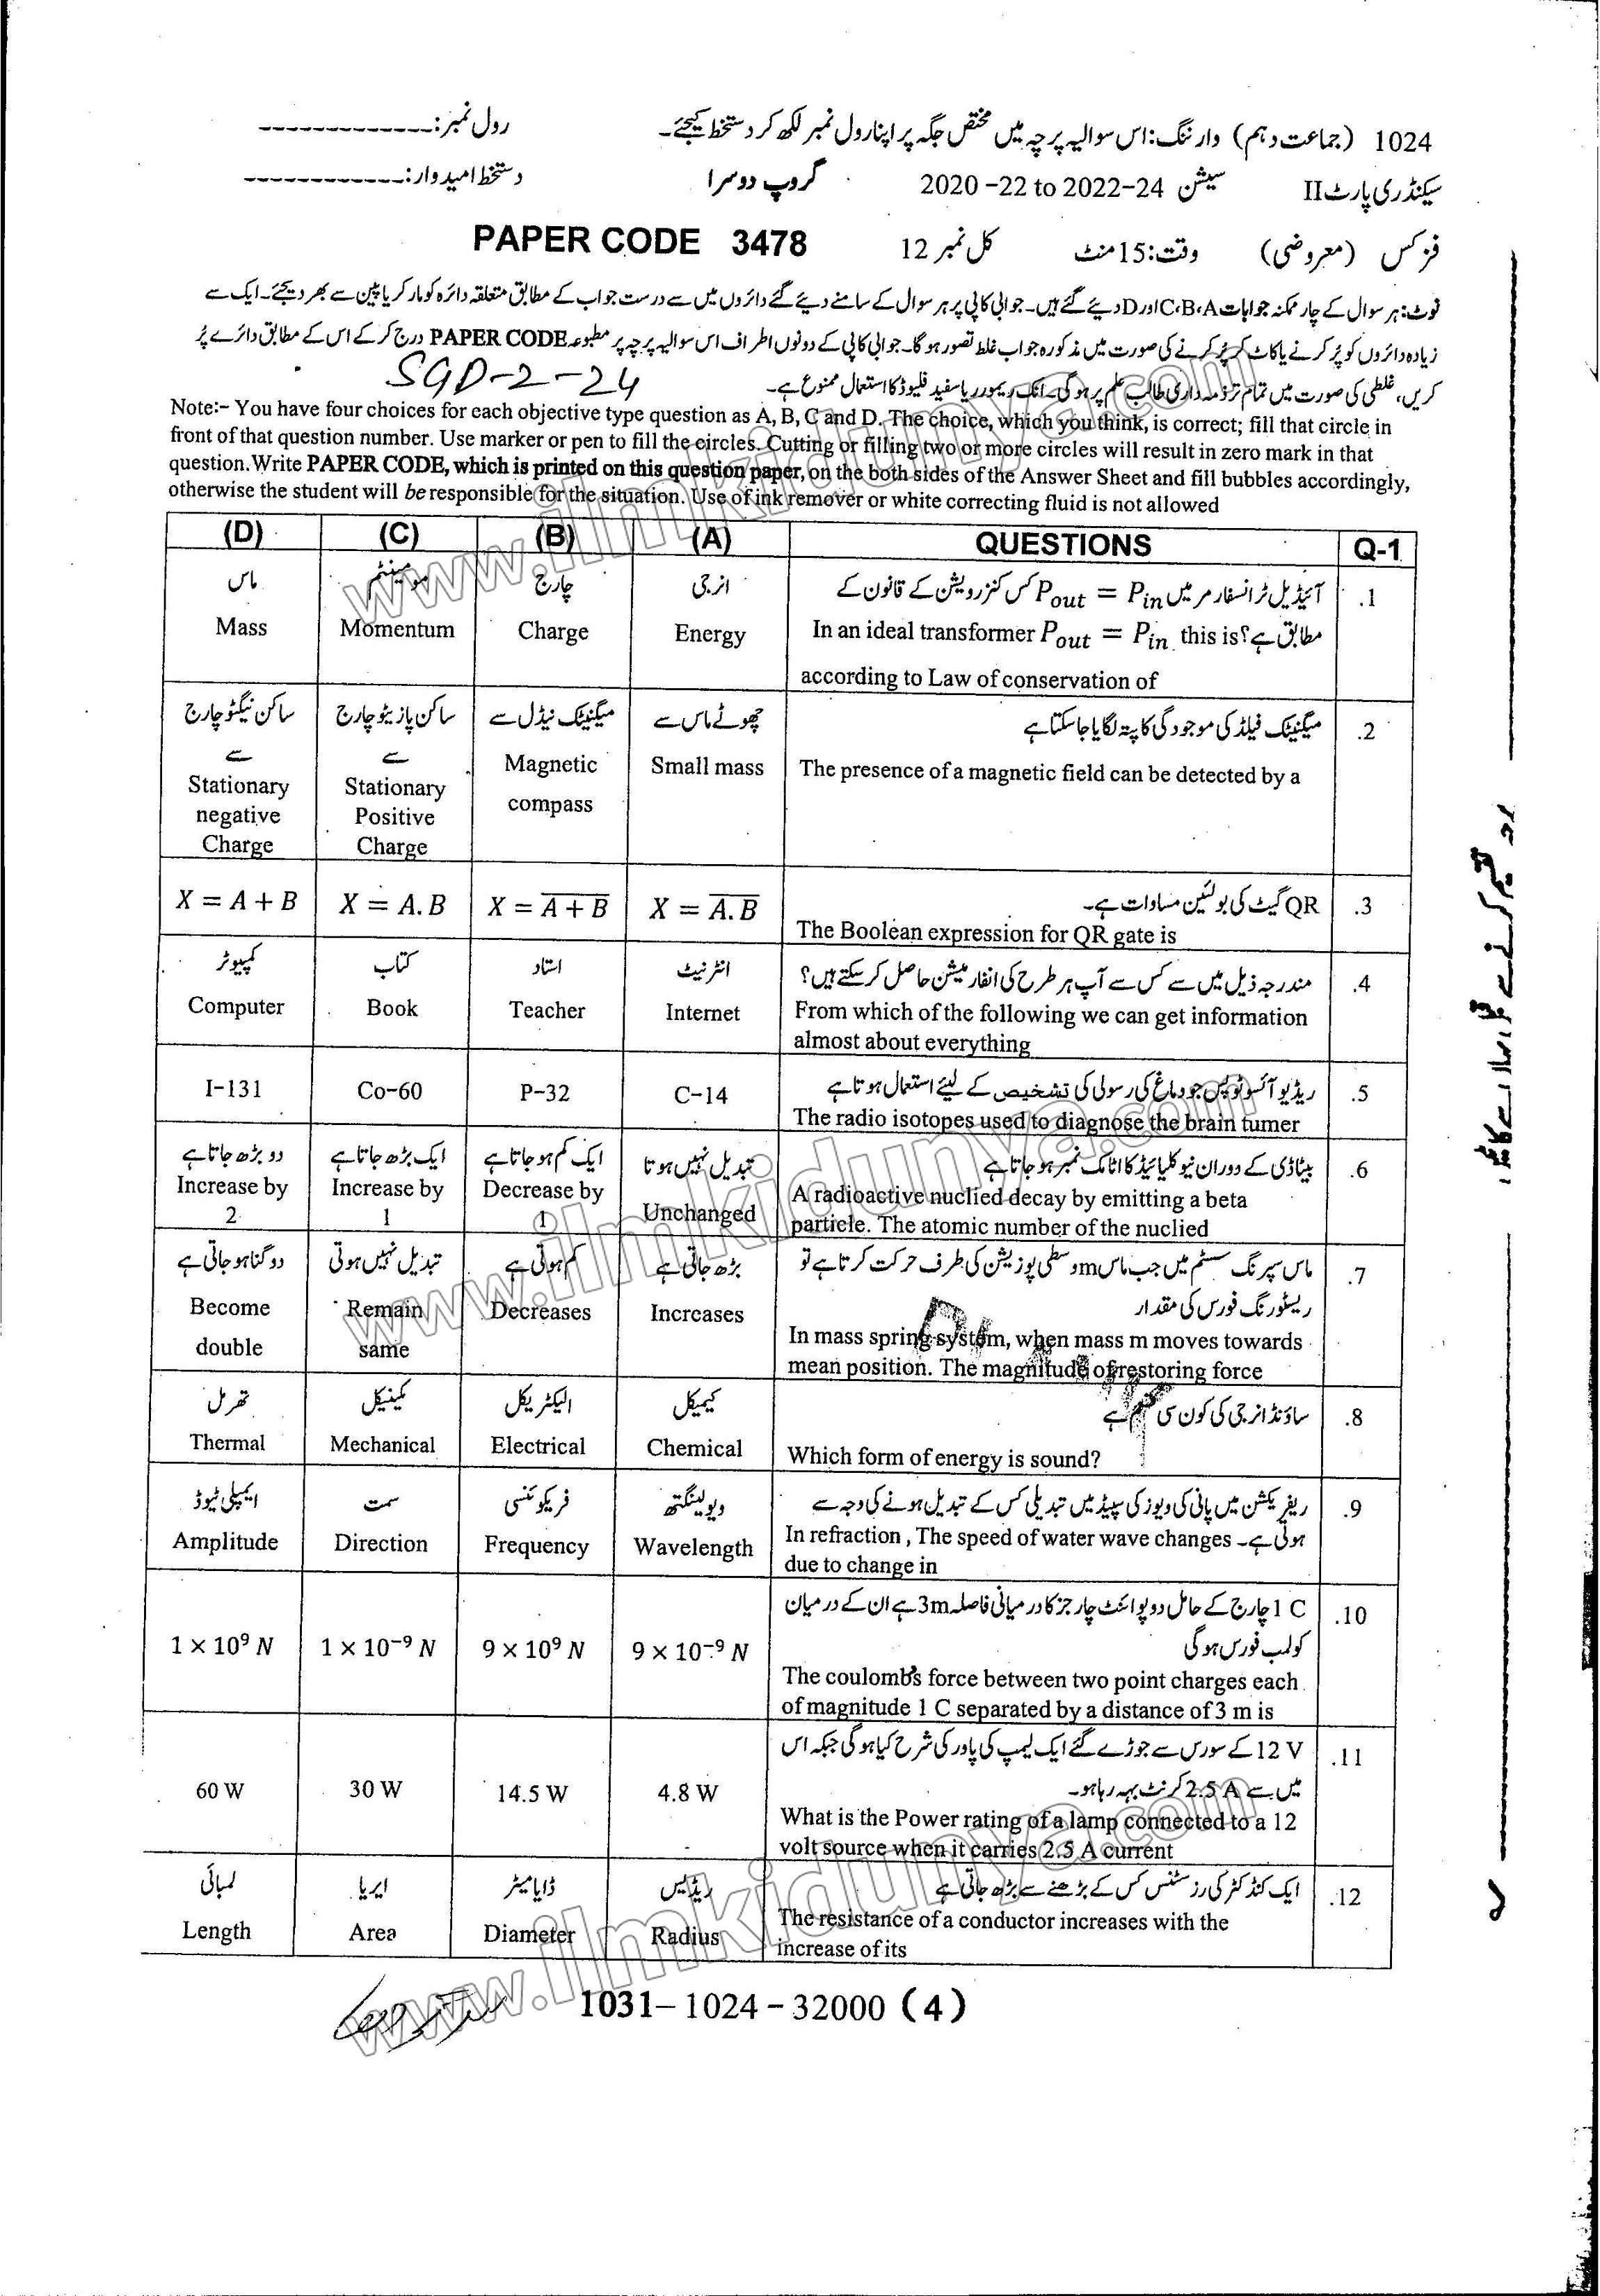 1024 (جماعت دہم) وارننگ: اس سوالیہ پرچہ میں مختص جگہ پر اپنا رول نمبر لکھ کر دستخط کیجئے۔ رول نمبر: -------------
سیکنڈری پارٹ II سیشن 2020-22 to 2022-24 گروپ دوسرا دستخط امیدوار: ------------
فزکس (معروضی) وقت: 15 منٹ کل نمبر 12 PAPER CODE 3478
نوٹ: ہر سوال کے چار ممکنہ جوابات C،B،A اور D دیئے گئے ہیں۔ جوابی کاپی پر ہر سوال کے سامنے دیئے گئے دائروں میں سے درست جواب کے مطابق متعلقہ دائرہ کو مارکر یا پین سے بھر دیجئے۔ ایک سے
زیادہ دائروں کو پُر کرنے یا کاٹ کر پُر کرنے کی صورت میں مذکورہ جواب غلط تصور ہوگا۔ جوابی کاپی کے دونوں اطراف اس سوالیہ پرچہ پر مطبوعہ PAPER CODE درج کر کے اس کے مطابق دائرے پُر
کریں، غلطی کی صورت میں تمام تر ذمہ داری طالب علم پر ہوگی۔ انک ریموور یا سفید فلیوڈ کا استعمال ممنوع ہے۔ SGD-2-24
Note:- You have four choices for each objective type question as A, B, C and D. The choice, which you think, is correct; fill that circle in
front of that question number. Use marker or pen to fill the circles. Cutting or filling two or more circles will result in zero mark in that
question. Write PAPER CODE, which is printed on this question paper, on the both sides of the Answer Sheet and fill bubbles accordingly,
otherwise the student will be responsible for the situation. Use of ink remover or white correcting fluid is not allowed
(D) (C) (B) (A) QUESTIONS Q-1
.1 آئیڈیل ٹرانسفارمر میں Pout = Pin کس کنزرویشن کے قانون کے
مطابق ہے؟ In an ideal transformer Pout = Pin this is
according to Law of conservation of
انرجی چارج مومینٹم ماس
Mass Momentum Charge Energy
.2 میگنیٹک فیلڈ کی موجودگی کا پتہ لگایا جا سکتا ہے
The presence of a magnetic field can be detected by a
چھوٹے ماس سے میگنیٹک نیڈل سے ساکن پازیٹو چارج سے ساکن نیگٹو چارج سے
Small mass
Magnetic
compass
Stationary
Positive
Charge
Stationary
negative
Charge
.3 QR گیٹ کی بولئین مساوات ہے۔
The Boolean expression for QR gate is
X = A + B X = A.B X = \overline{A + B} X = \overline{A.B}
.4 مندرجہ ذیل میں سے کس سے آپ ہر طرح کی انفارمیشن حاصل کر سکتے ہیں؟
From which of the following we can get information
almost about everything
انٹرنیٹ استاد کتاب کمپیوٹر
Computer Book Teacher Internet
.5 ریڈیو آئسوٹوپس جو دماغ کی رسولی کی تشخیص کے لیئے استعمال ہوتا ہے
The radio isotopes used to diagnose the brain tumer
I-131 Co-60 P-32 C-14
.6 بیٹا ڈی کے دوران نیوکلیائیڈ کا اٹامک نمبر ہو جاتا ہے
A radioactive nuclied decay by emitting a beta
particle. The atomic number of the nuclied
تبدیل نہیں ہوتا ایک کم ہو جاتا ہے ایک بڑھ جاتا ہے دو بڑھ جاتا ہے
Unchanged
Decrease by
1
Increase by
1
Increase by
2
.7 ماس سپرنگ سسٹم میں جب ماس m وسطی پوزیشن کی طرف حرکت کرتا ہے تو
ریسٹورنگ فورس کی مقدار
In mass spring system, when mass m moves towards
mean position. The magnitude of restoring force
بڑھ جاتی ہے کم ہوتی ہے تبدیل نہیں ہوتی دو گنا ہو جاتی ہے
Increases
Decreases
Remain
same
Become
double
.8 ساؤنڈ انرجی کی کون سی قسم ہے
Which form of energy is sound?
کیمیکل الیکٹریکل مکینیکل تھرمل
Thermal Mechanical Electrical Chemical
.9 ریفریکشن میں پانی کی ویوز کی سپیڈ میں تبدیلی کس کے تبدیل ہونے کی وجہ سے
ہوتی ہے۔ In refraction , The speed of water wave changes
due to change in
ویولینگتھ فریکوئنسی سمت ایمپلی ٹیوڈ
Amplitude Direction Frequency Wavelength
.10 1 C چارج کے حامل دو پوائنٹ چارجز کا درمیانی فاصلہ 3m ہے ان کے درمیان
کولمب فورس ہوگی
The coulomb's force between two point charges each
of magnitude 1 C separated by a distance of 3 m is
1 × 10⁹ N 1 × 10⁻⁹ N 9 × 10⁹ N 9 × 10⁻⁹ N
.11 12 V کے سورس سے جوڑے گئے ایک لیمپ کی پاور کی شرح کیا ہوگی جبکہ اس
میں سے 2.5 A کرنٹ بہہ رہا ہو۔
What is the Power rating of a lamp connected to a 12
volt source when it carries 2.5 A current
60 W 30 W 14.5 W 4.8 W
.12 ایک کنڈکٹر کی رزسٹنس کس کے بڑھنے سے بڑھ جاتی ہے
The resistance of a conductor increases with the
increase of its
ریڈیس ڈایا میٹر ایریا لمبائی
Length Area Diameter Radius
1031-1024-32000 (4)
www.ilmkidunya.com
www.ilmkidunya.com
www.ilmkidunya.com